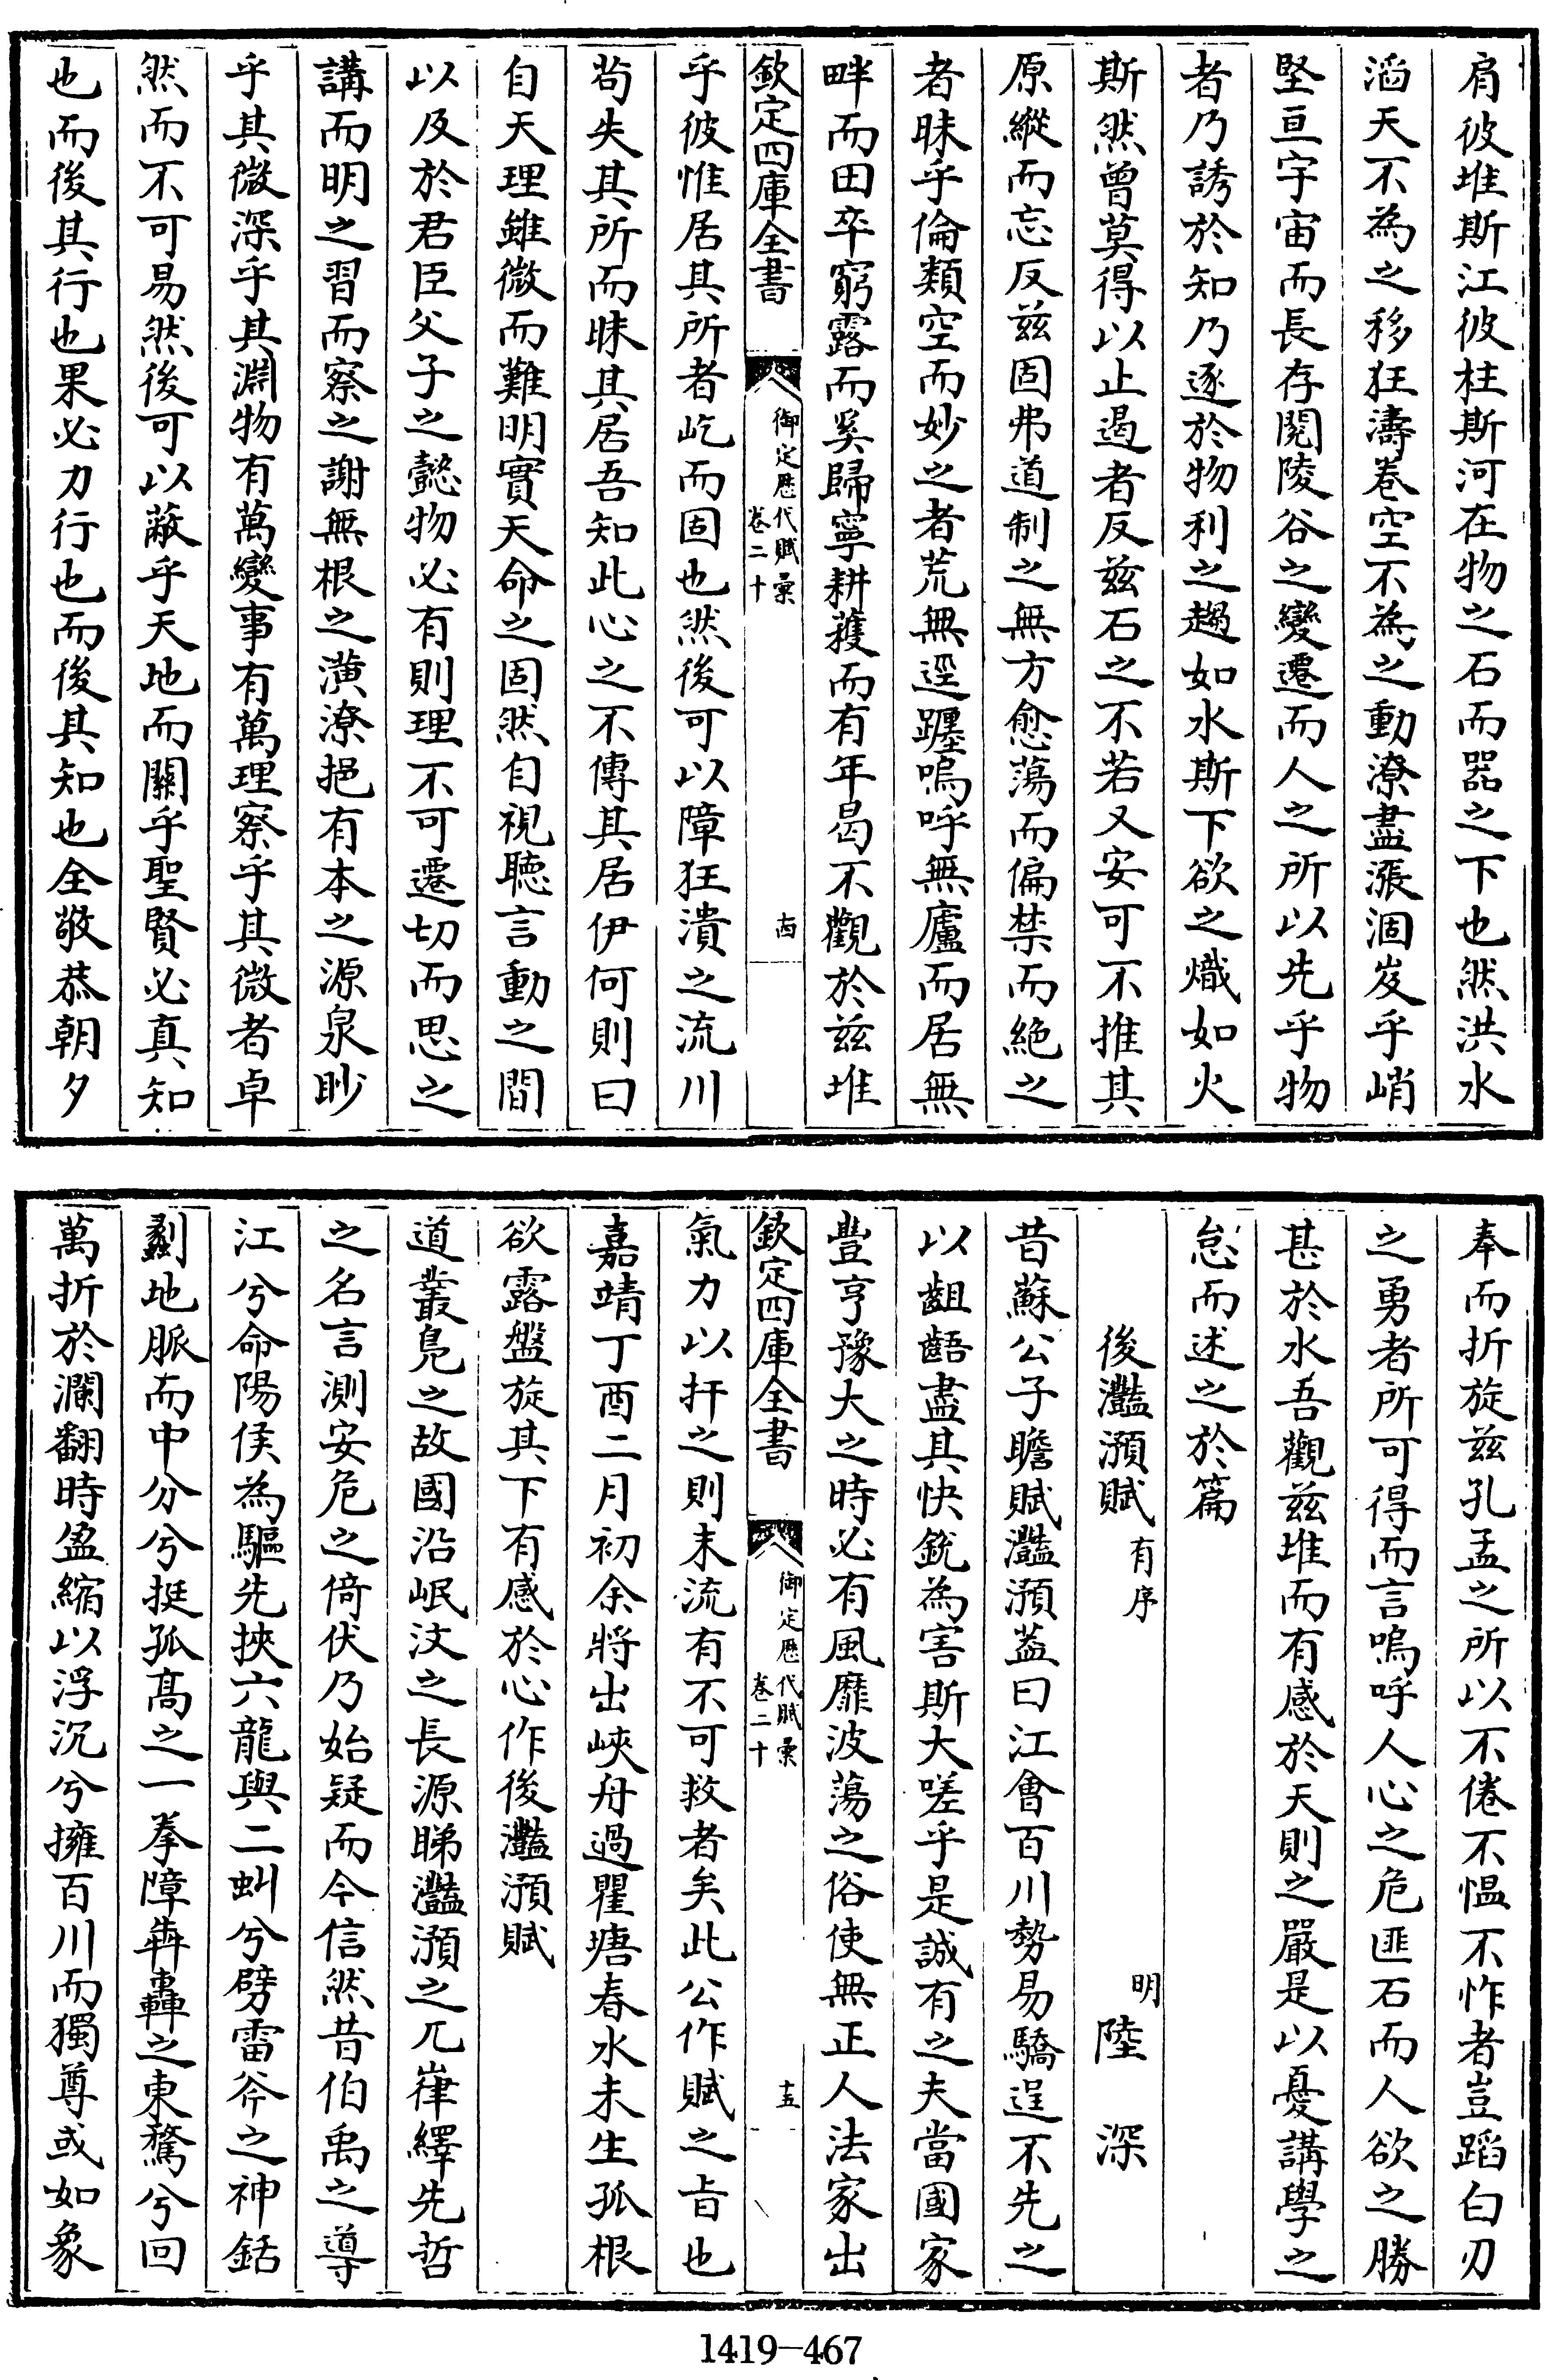 肩彼堆斯江彼柱斯河在物之石而器之下也然洪水
滔天不為之移狂濤巻空不為之動潦盡漲涸岌乎峭
堅亘宇宙而長存閱陵谷之變遷而人之所以先乎物
者乃誘於知乃逐於物利之趨如水斯下欲之熾如火
斯然曾莫得以止遏者反兹石之不若又安可不推其
原縱而忘反兹固弗道制之無方愈蕩而偏禁而絶之
者昧乎倫類空而妙之者荒無逕躔嗚呼無廬而居無
畔而田卒窮露而奚歸寧耕穫而有年曷不觀於兹堆
欽定四庫全書
御定歷代賦彙
卷二十
十四
乎彼惟居其所者屹而固也然後可以障狂潰之流川
茍失其所而昧其居吾知此心之不傳其居伊何則曰
自天理雖微而難明實天命之固然自視聽言動之間
以及於君臣父子之懿物必有則理不可遷切而思之
講而明之習而察之謝無根之潢潦挹有本之源泉眇
乎其微深乎其淵物有萬變事有萬理察乎其微者卓
然而不可易然後可以蔽乎天地而關乎聖賢必真知
也而後其行也果必力行也而後其知也全敬恭朝夕
奉而折旋兹孔孟之所以不倦不慍不怍者豈蹈白刃
之勇者所可得而言嗚呼人心之危匪石而人欲之勝
甚於水吾觀兹堆而有感於天則之嚴是以憂講學之
怠而述之於篇
後灩澦賦 有序 明 陸深
昔蘇公子瞻賦灩澦蓋曰江會百川勢易驕逞不先之
以齟齬盡其快銳為害斯大嗟乎是誠有之夫當國家
豐亨豫大之時必有風靡波蕩之俗使無正人法家出
欽定四庫全書
御定歷代賦彙
卷二十
十五
氣力以扞之則末流有不可救者矣此公作賦之旨也
嘉靖丁酉二月初余將出峽舟過瞿塘春水未生孤根
欲露盤旋其下有感於心作後灩澦賦
道叢鳧之故國沿岷汶之長源睇灩澦之兀嵂繹先哲
之名言測安危之倚伏乃始疑而今信然昔伯禹之導
江兮命陽侯為驅先挾六龍與二虯兮劈雷斧之神銛
劙地脈而中分兮挺孤髙之一拳障犇轟之東騖兮回
萬折於瀾翻時盈縮以浮沉兮擁百川而獨尊或如象
1419-467